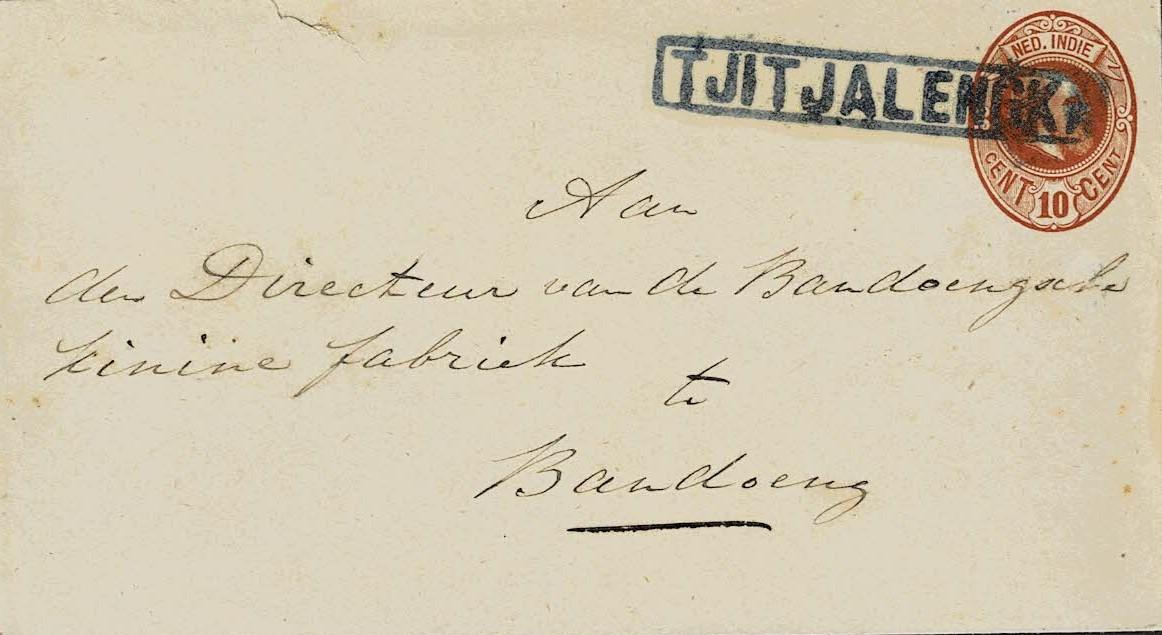 TJITJALENGKA
NED. INDIE
CENT 10 CENT
Aan
den Directeur van de Bandoengsche
kinine fabriek
te
Bandoeng